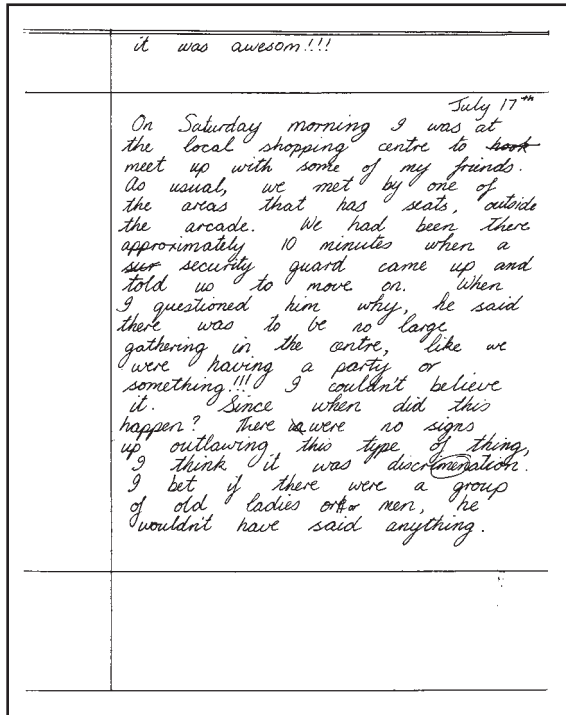 it was awesom!!!
July 17th
On Saturday morning I was at
the local shopping centre to hook
meet up with some of my friends.
As usual, we met by one of
the areas that has seats, outside
the arcade. We had been there
approximately 10 minutes when a
sur security guard came up and
told us to move on. When
I questioned him why, he said
there was to be no large
gathering in the centre, like we
were having a party or
something!!! I couldn't believe
it. Since when did this
happen? There were no signs
up outlawing this type of thing,
I think it was discrimenation.
I bet if there were a group
of old ladies or men, he
wouldn't have said anything.